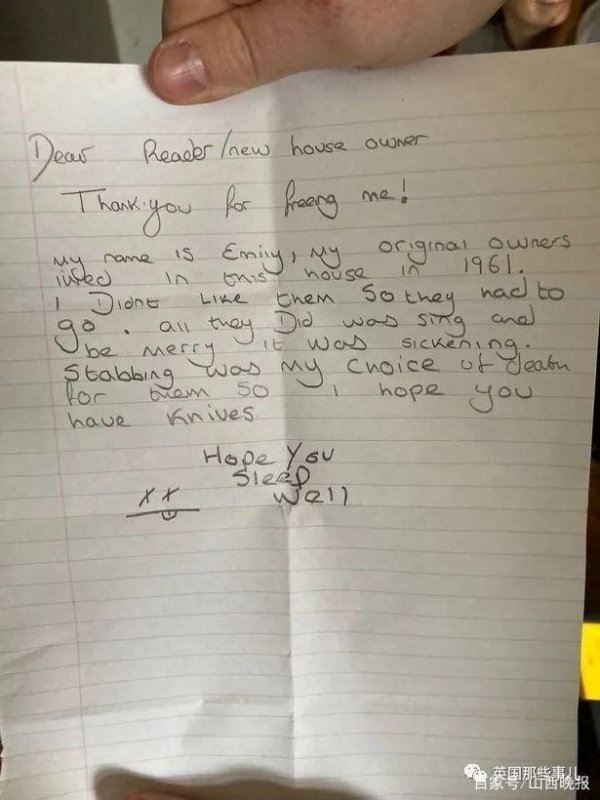 Dear Reader/new house owner
Thank·you for freeng me!
my name is Emily, my original owners
lived in this house in 1961.
I Didnt Like them So they had to
go. all they Did was sing and
be merry it was sickening.
Stabbing was my choice of death
for them so I hope you
have knives
Hope You
Sleep
Well
xx
英国那些事儿
百家号/山西晚报